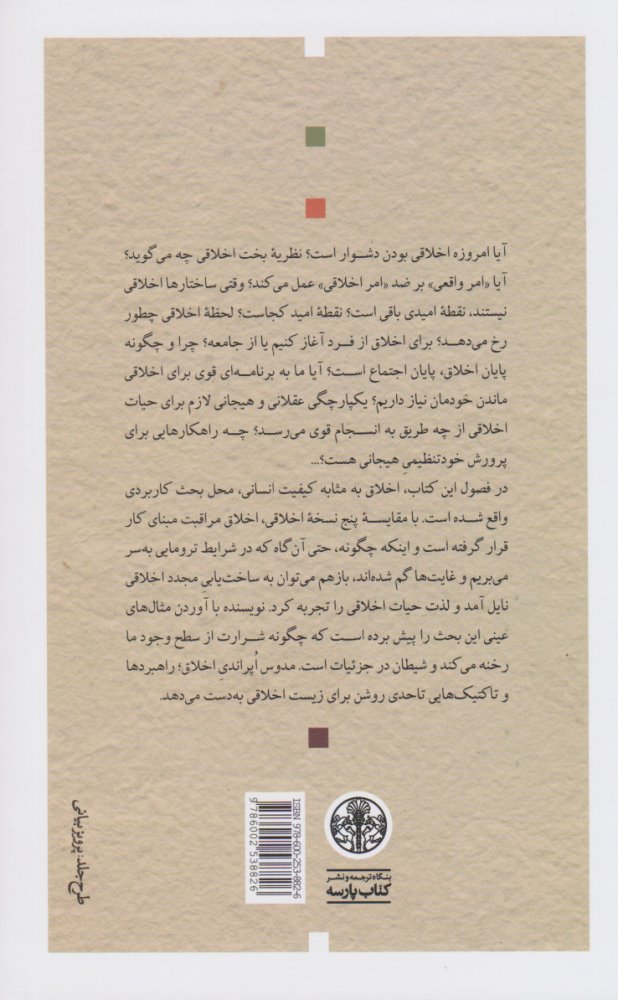 آیا امروزه اخلاقی بودن دشوار است؟ نظریهٔ بخت اخلاقی چه می‌گوید؟
آیا «امر واقعی» بر ضد «امر اخلاقی» عمل می‌کند؟ وقتی ساختارها اخلاقی
نیستند، نقطهٔ امیدی باقی است؟ نقطهٔ امید کجاست؟ لحظهٔ اخلاقی چطور
رخ می‌دهد؟ برای اخلاق از فرد آغاز کنیم یا از جامعه؟ چرا و چگونه
پایان اخلاق، پایان اجتماع است؟ آیا ما به برنامه‌ای قوی برای اخلاقی
ماندن خودمان نیاز داریم؟ یکپارچگی عقلانی و هیجانی لازم برای حیات
اخلاقی از چه طریق به انسجام قوی می‌رسد؟ چه راهکارهایی برای
پرورش خودتنظیمیِ هیجانی هست؟...
در فصول این کتاب، اخلاق به مثابه کیفیت انسانی، محل بحث کاربردی
واقع شده است. با مقایسهٔ پنج نسخهٔ اخلاقی، اخلاق مراقبت مبنای کار
قرار گرفته است و اینکه چگونه، حتی آن‌گاه که در شرایط ترومایی به‌سر
می‌بریم و غایت‌ها گم شده‌اند، بازهم می‌توان به ساخت‌یابیِ مجدد اخلاقی
نایل آمد و لذت حیات اخلاقی را تجربه کرد. نویسنده با آوردن مثال‌های
عینی این بحث را پیش برده است که چگونه شرارت از سطح وجود ما
رخنه می‌کند و شیطان در جزئیات است. مدوس اُپراندیِ اخلاق؛ راهبردها
و تاکتیک‌هایی تاحدی روشن برای زیست اخلاقی به‌دست می‌دهد.
بنگاه ترجمه و نشر
کتاب پارسه
ISBN 978-600-253-882-6
9786002538826
طرح جلد: پرویز بیانی